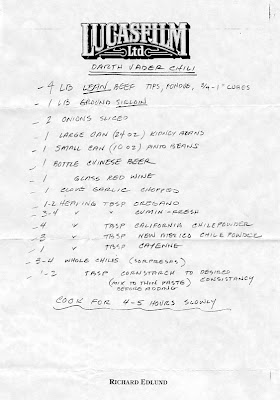 LUCASFILM
Ltd
DARTH VADER CHILI
- 4 LB LEAN BEEF TIPS, 3/4-1" CUBES
- 1 LB GROUND SIRLOIN
- 2 ONIONS SLICED
- 1 LARGE CAN (24 OZ) KIDNEY BEANS
- 1 SMALL CAN (10 OZ) BEANS
- 1 BOTTLE CHINESE BEER
- 1 GLASS RED WINE
- 1 CLOVE GARLIC CHOPPED
1-2 HEAPING TBSP OREGANO
- 3-4 " " CUMIN - FRESH
- 4 " TBSP CALIFORNIA CHILE POWDER
- 3 " TBSP NEW MEXICO CHILE POWDER
- 1 " TBSP CAYENNE
- 3-4 WHOLE CHILIS
1-2 TBSP CORNSTARCH TO DESIRED
(MIX TO THIN PASTE) CONSISTANCY
BEFORE ADDING
COOK FOR 4-5 HOURS SLOWLY
RICHARD EDLUND